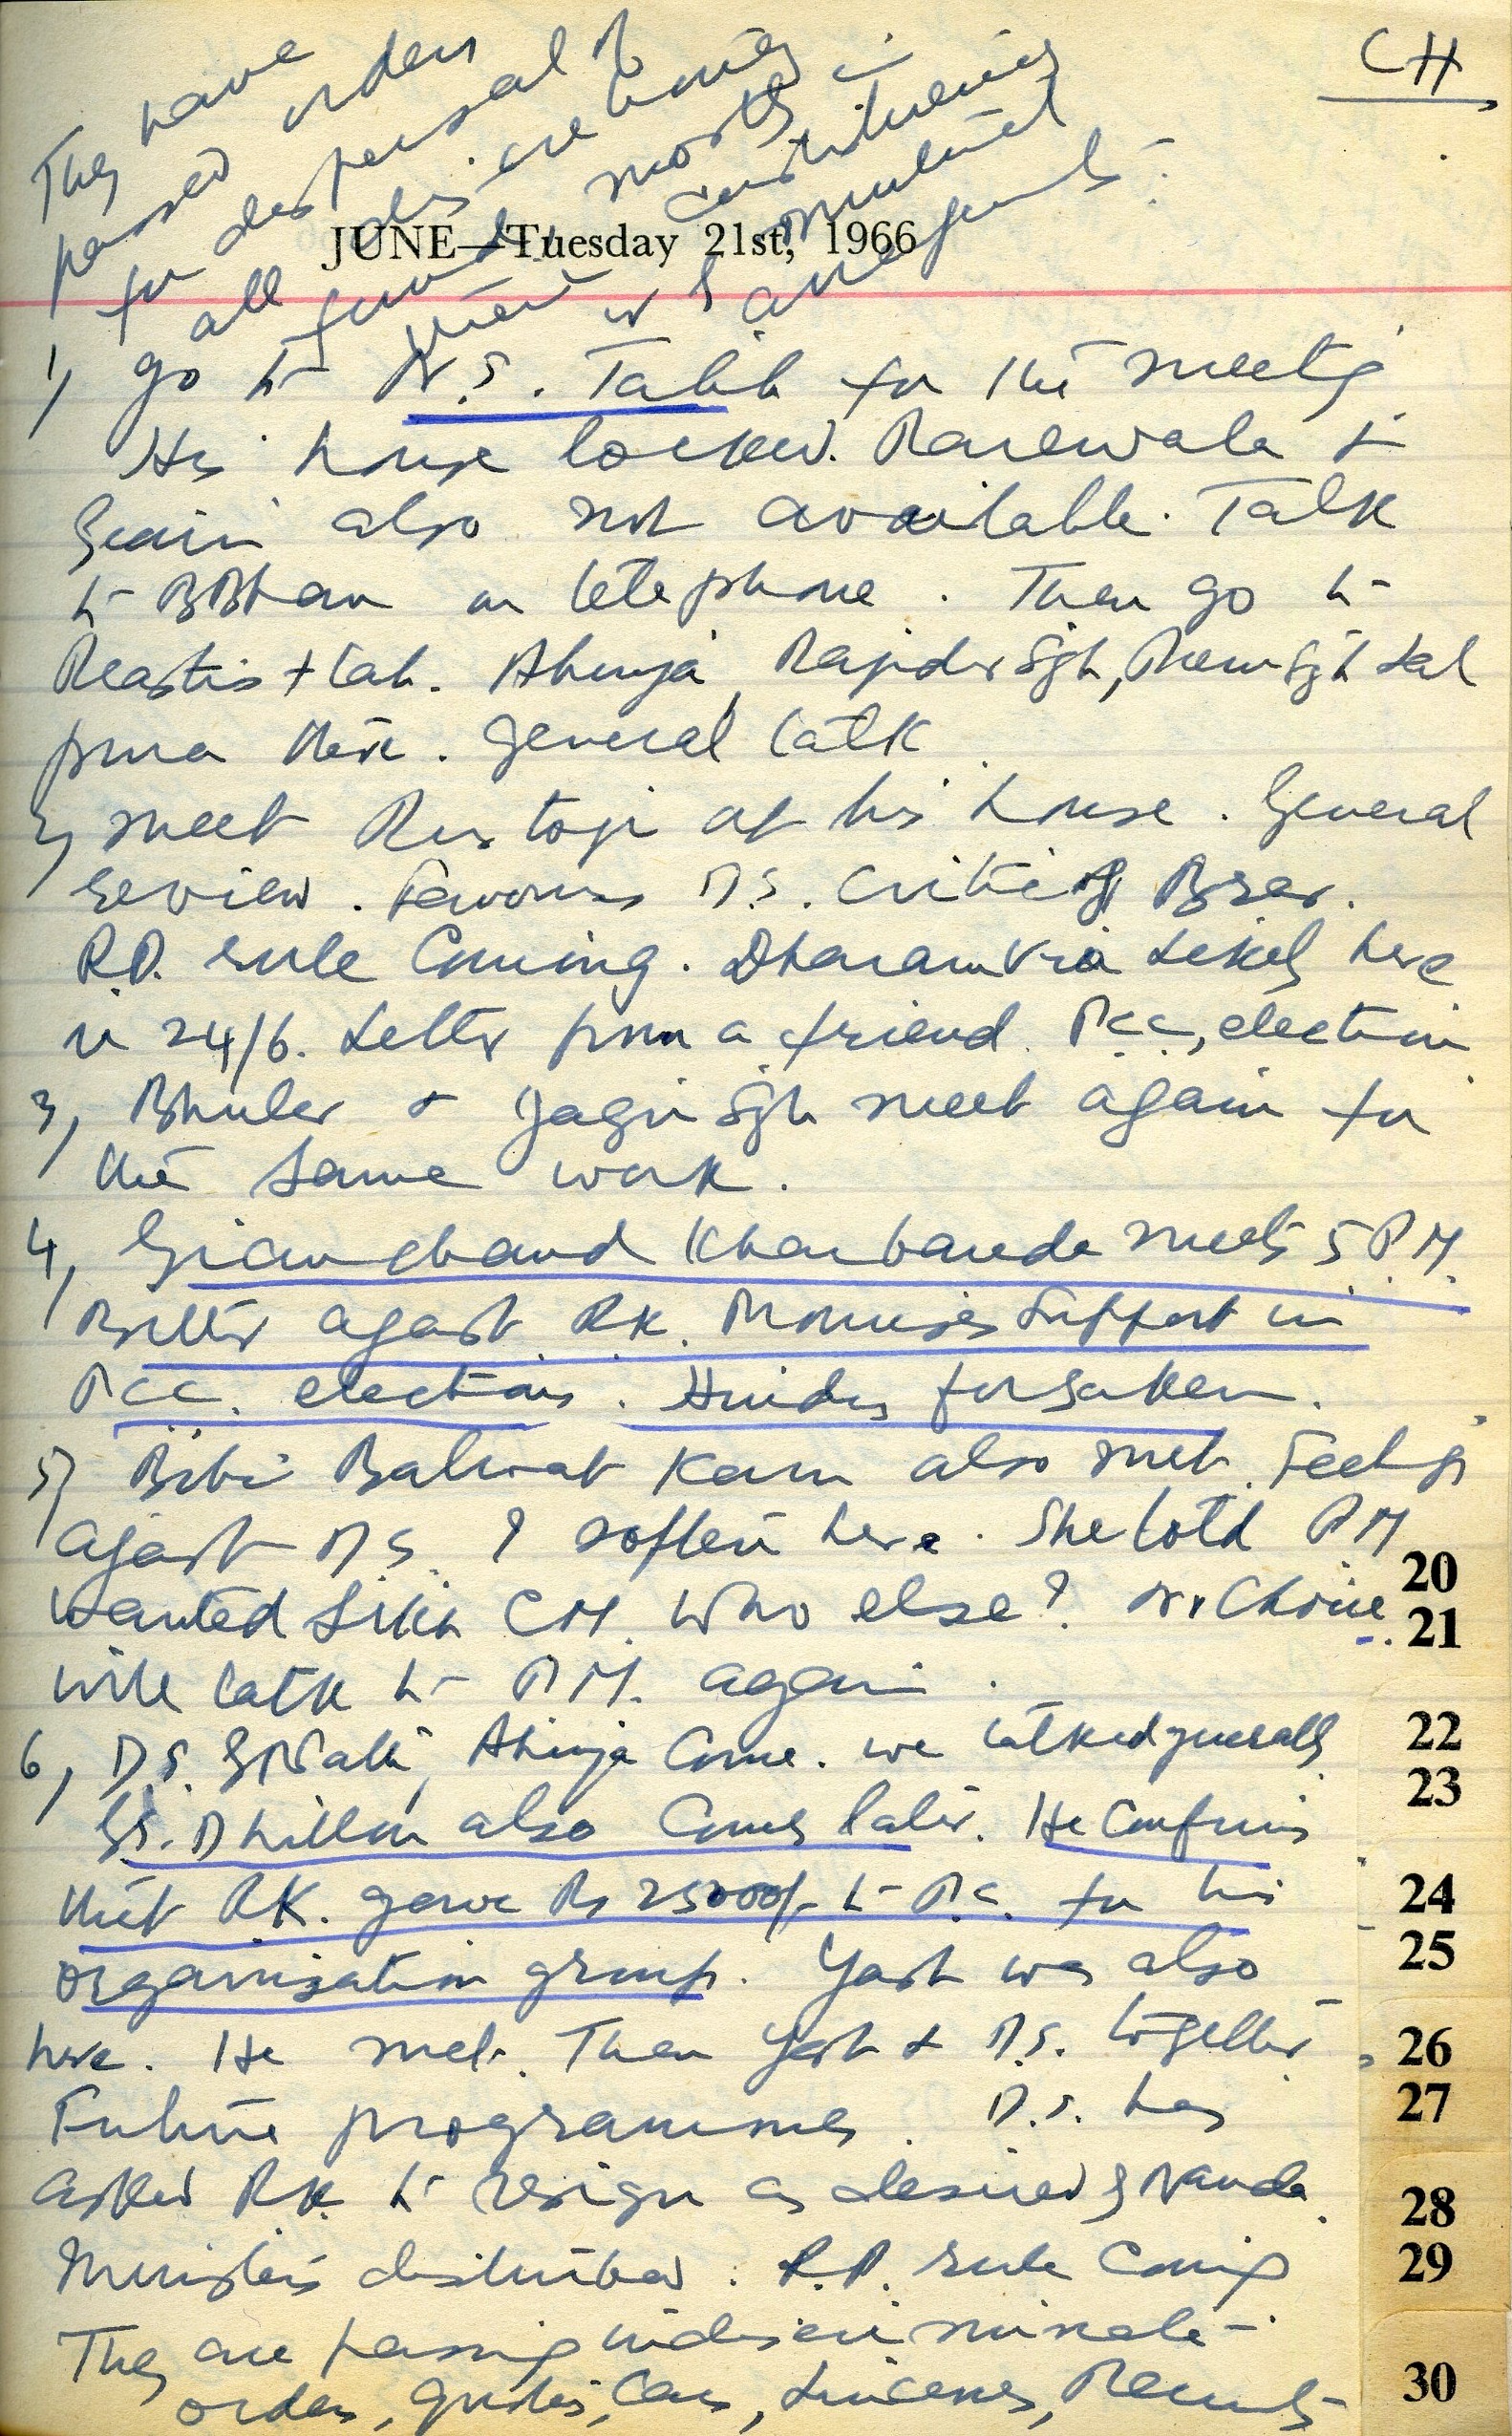 CH
They have
passed orders
for dispersal of
all
funds mostly in
their constituencies
JUNE—Tuesday 21st, 1966
1, go to N.S. Talib for the meeting
His house locked. Rarewala &
Giani also not available. Talk
to BBhan on telephone. Then go to
Ahuja, Rajinder Sgh, Prem Sgh Lal
pura there. General talk
2, meet at his house. General
review. Favours D.S. Brar.
P.R. rule coming. Dharamvira likely here
on 24/6. Letter from a friend. PCC, election
3, Bhuler & Jagir Sgh meet again for
the same work.
4, Gianchand Kharbanda meets 5 P.M.
Bitter agast RK. Promises support in
PCC. elections. Hindus forsaken.
5, Bibi Balwat Kaur also met. Feelgs
agast D.S. I soften here. She told PM
wanted Sikh CM. Who else? No choice
will talk to P.M. again.
6, D.S. Ahuja come. we talked generally
GS. Dhillon also comes later. He confirms
that RK. gave Rs 25000/- to P.C. for his
organisation group. Yash was also
here. He met. Then Yash & D.S. together
Future programmes. D.S. has
asked RK to resign as desired by Nanda.
Ministers disturbed. P.R. rule coming
They are passing indiscriminate
orders, quotas, cars, licences,
20
21
22
23
24
25
26
27
28
29
30